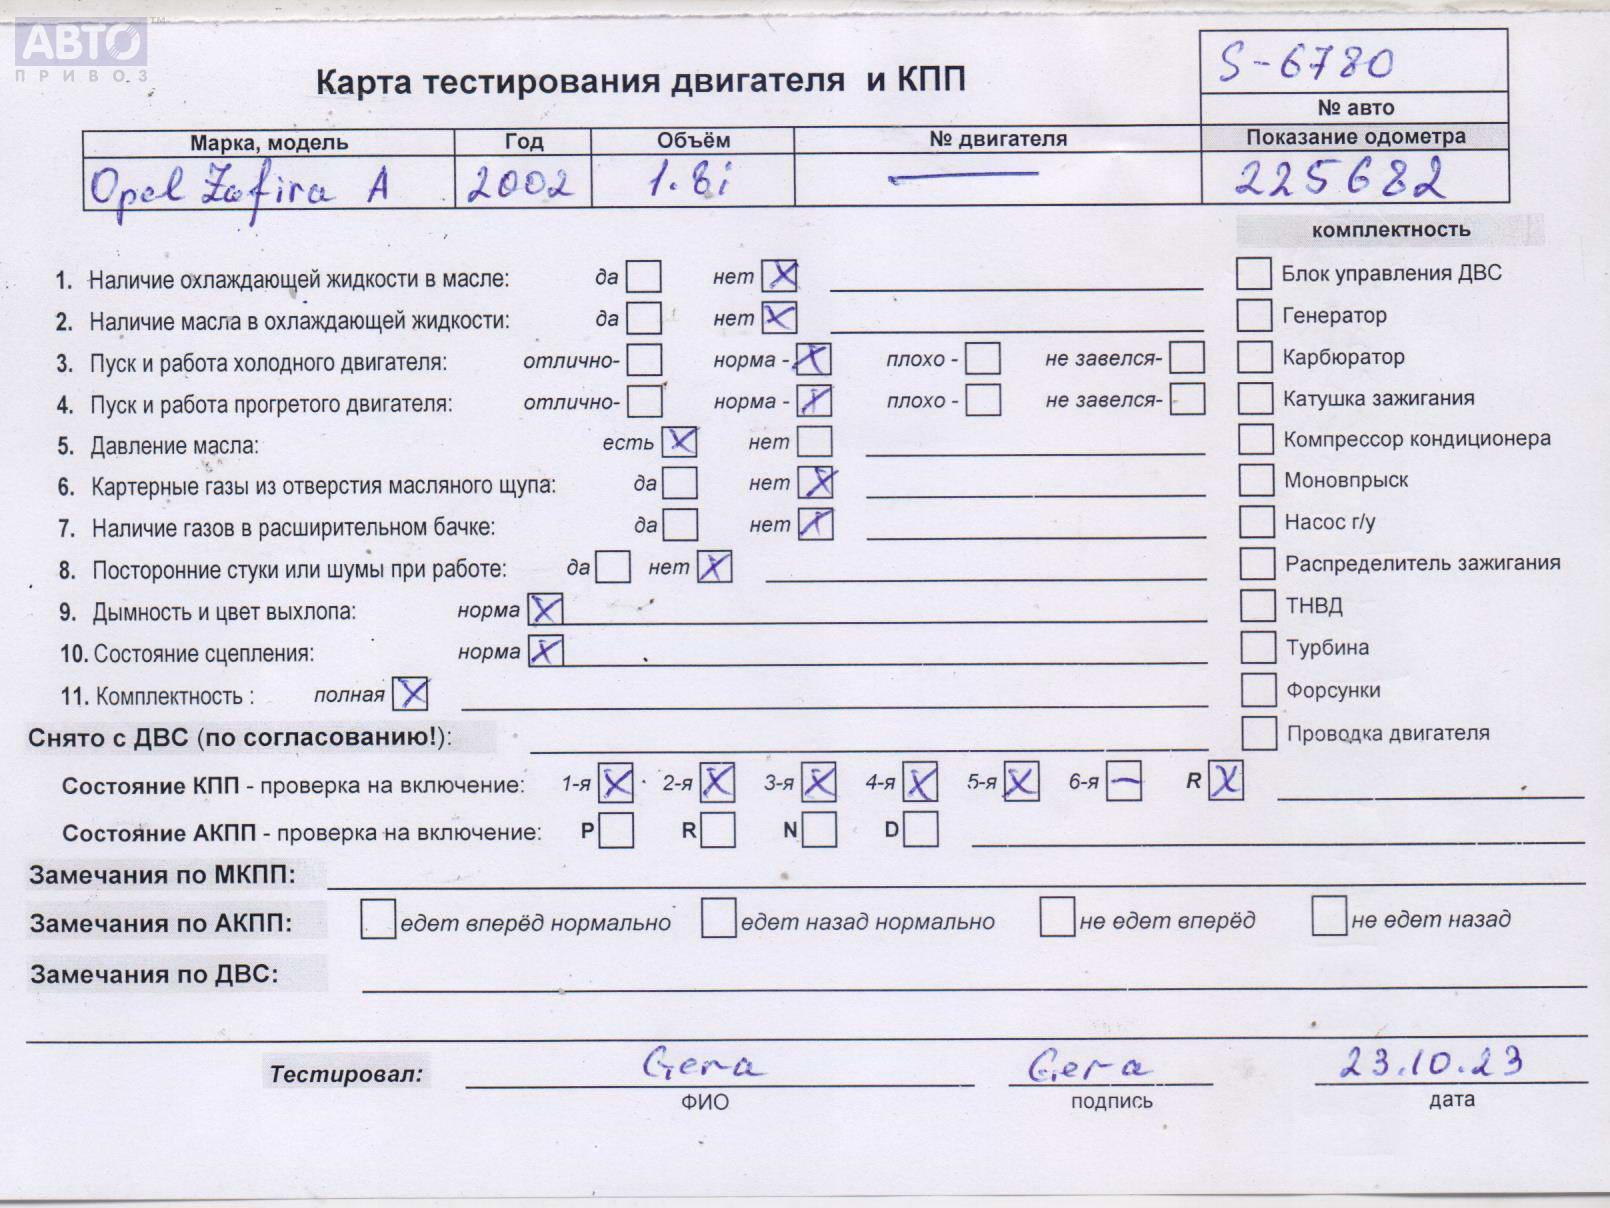 АВТО
ПРИВОЗ
S-6780
№ авто
Карта тестирования двигателя и КПП
Марка, модель Год Объём № двигателя Показание одометра
Opel Zafira A 2002 1.8i — 225682
комплектность
1. Наличие охлаждающей жидкости в масле: да нет X
2. Наличие масла в охлаждающей жидкости: да нет X
3. Пуск и работа холодного двигателя: отлично- норма - X плохо - не завелся-
4. Пуск и работа прогретого двигателя: отлично- норма - X плохо - не завелся-
5. Давление масла: есть X нет
6. Картерные газы из отверстия масляного щупа: да нет X
7. Наличие газов в расширительном бачке: да нет X
8. Посторонние стуки или шумы при работе: да нет X
9. Дымность и цвет выхлопа: норма X
10. Состояние сцепления: норма X
11. Комплектность : полная X
Блок управления ДВС
Генератор
Карбюратор
Катушка зажигания
Компрессор кондиционера
Моновпрыск
Насос г/у
Распределитель зажигания
ТНВД
Турбина
Форсунки
Проводка двигателя
Снято с ДВС (по согласованию!):
Состояние КПП - проверка на включение: 1-я X 2-я X 3-я X 4-я X 5-я X 6-я — R X
Состояние АКПП - проверка на включение: P R N D
Замечания по МКПП:
Замечания по АКПП: едет вперёд нормально едет назад нормально не едет вперёд не едет назад
Замечания по ДВС:
Тестировал: Gera Gera 23.10.23
ФИО подпись дата